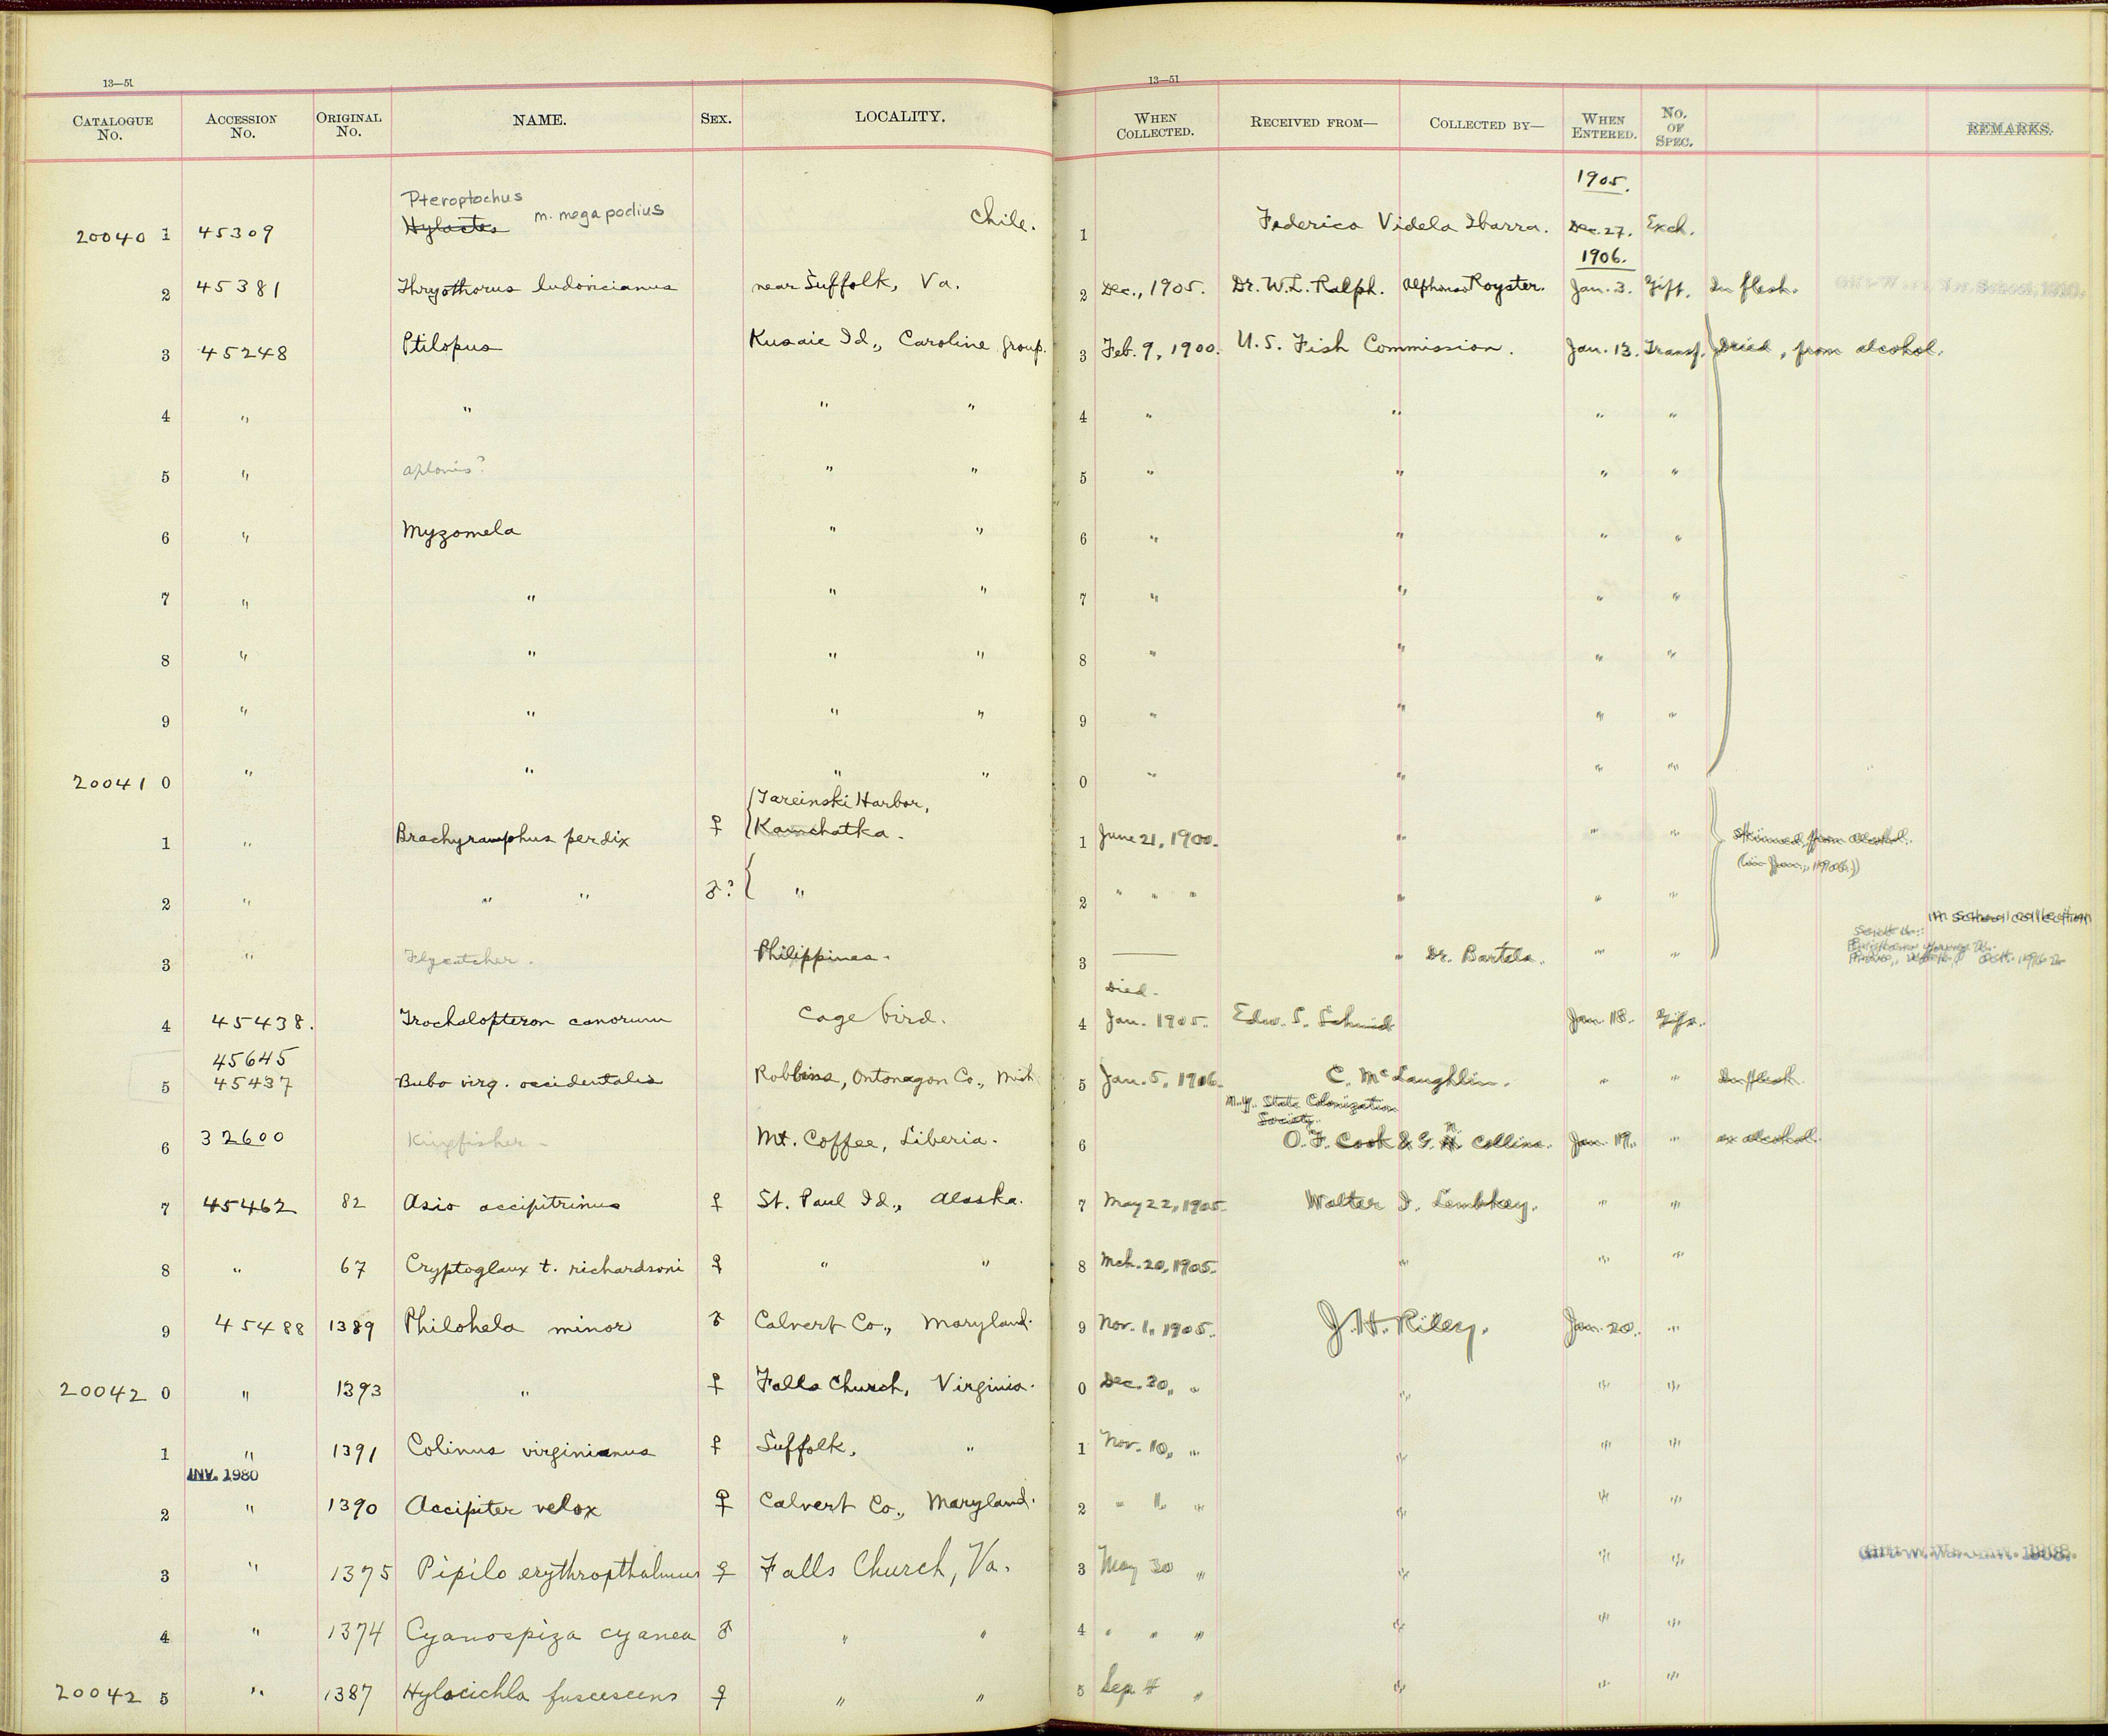 13—51
13—51
CATALOGUE No. ACCESSION No. ORIGINAL No. NAME. SEX. LOCALITY. WHEN COLLECTED. RECEIVED FROM— COLLECTED BY— WHEN ENTERED. No. OF SPEC. REMARKS.
1905.
Pteroptochus
20040 1 45309 Hylactes m. megapodius Chile. 1 Federico Videla Ibarra. Dec. 27. Exch.
1906.
2 45381 Thryothorus ludovicianus near Suffolk, Va. 2 Dec., 1905. Dr. W.L. Ralph. Alphonso Royster. Jan. 3. Gift. In flesh.
3 45248 Ptilopus Kusaie Id., Caroline group. 3 Feb. 9, 1900. U.S. Fish Commission. Jan. 13. Transf. Dried, from alcohol.
4 " " " " 4 " " " "
5 " aplonis? " " 5 " " " "
6 " Myzomela " " 6 " " " "
7 " " " " 7 " " " "
8 " " " " 8 " " " "
9 " " " " 9 " " " "
20041 0 " " " " 0 " " " "
Tareinski Harbor,
1 " Brachyramphus perdix ♀ Kamchatka. 1 June 21, 1900. " " " Skinned, from alcohol.
(in Jan., 1906.)
2 " " " ♂? " 2 " " " " " "
in school collection
3 " Flycatcher. Philippines. 3 — " Dr. Bartels. " "
Died.
4 45438. Trochalopteron canorum Cage bird. 4 Jan. 1905. Edw. S. Schmid Jan. 18. Gift.
45645
5 45437 Bubo virg. occidentalis Robbins, Ontonagon Co., Mich. 5 Jan. 5, 1906. C. McLaughlin. " " In flesh.
N.Y. State Colonization
Society.
6 32600 Kingfisher Mt. Coffee, Liberia. 6 O.F. Cook & G.N. Collins. Jan. 19. " ex alcohol.
7 45462 82 Asio accipitrinus ♀ St. Paul Id., Alaska. 7 May 22, 1905. Walter I. Lembkey. " "
8 " 67 Cryptoglaux t. richardsoni ♀ " " 8 Mch. 20, 1905. " " "
9 45488 1389 Philohela minor ♂ Calvert Co., Maryland. 9 Nov. 1, 1905. J.H. Riley. Jan. 20. "
20042 0 " 1393 " ♀ Falls Church, Virginia. 0 Dec. 30, " " " "
1 " 1391 Colinus virginianus ♀ Suffolk, " 1 Nov. 10, " " " "
INV. 1980
2 " 1390 Accipiter velox ♀ Calvert Co., Maryland. 2 " 1, " " " "
3 " 1375 Pipilo erythropthalmus ♀ Falls Church, Va. 3 May 30 " " " "
4 " 1374 Cyanospiza cyanea ♂ " " 4 " " " " " "
20042 5 " 1387 Hylocichla fuscescens ♀ " " 5 Sep. 4 " " " "